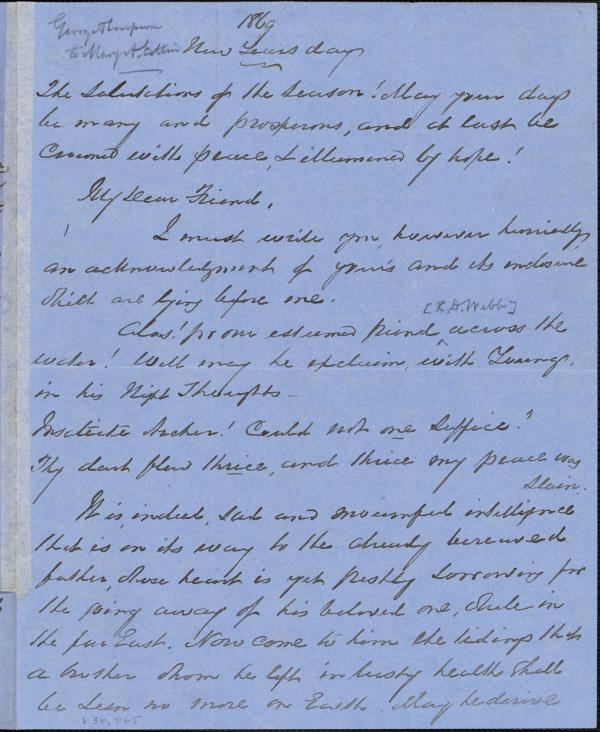 George Thompson
to Mary A. Estlin
1869
New Years day
The Salutations of the Season! May your days
be many and prosperous, and at last be
Crowned with peace, & illumined by hope!
My Dear Friend,
I must write you, however hurriedly,
an acknowledgment of yours and its enclosure
which are lying before me.
[R. D. Webb]
Alas! for our esteemed friend across the
water! Well may he exclaim, with Young,
in his Night Thoughts —
Insatiate Archer! Could not one suffice?
Thy dart flew thrice, and thrice my peace was
slain.
It is, indeed, sad and mournful intelligence
that is on its way to the already bereaved
father, whose heart is yet freshly sorrowing for
the going away of his beloved one, while in
the far East. Now come to him the tidings that
a brother whom he left in lusty health shall
be seen no more on Earth. May he derive
v. 36, p 65